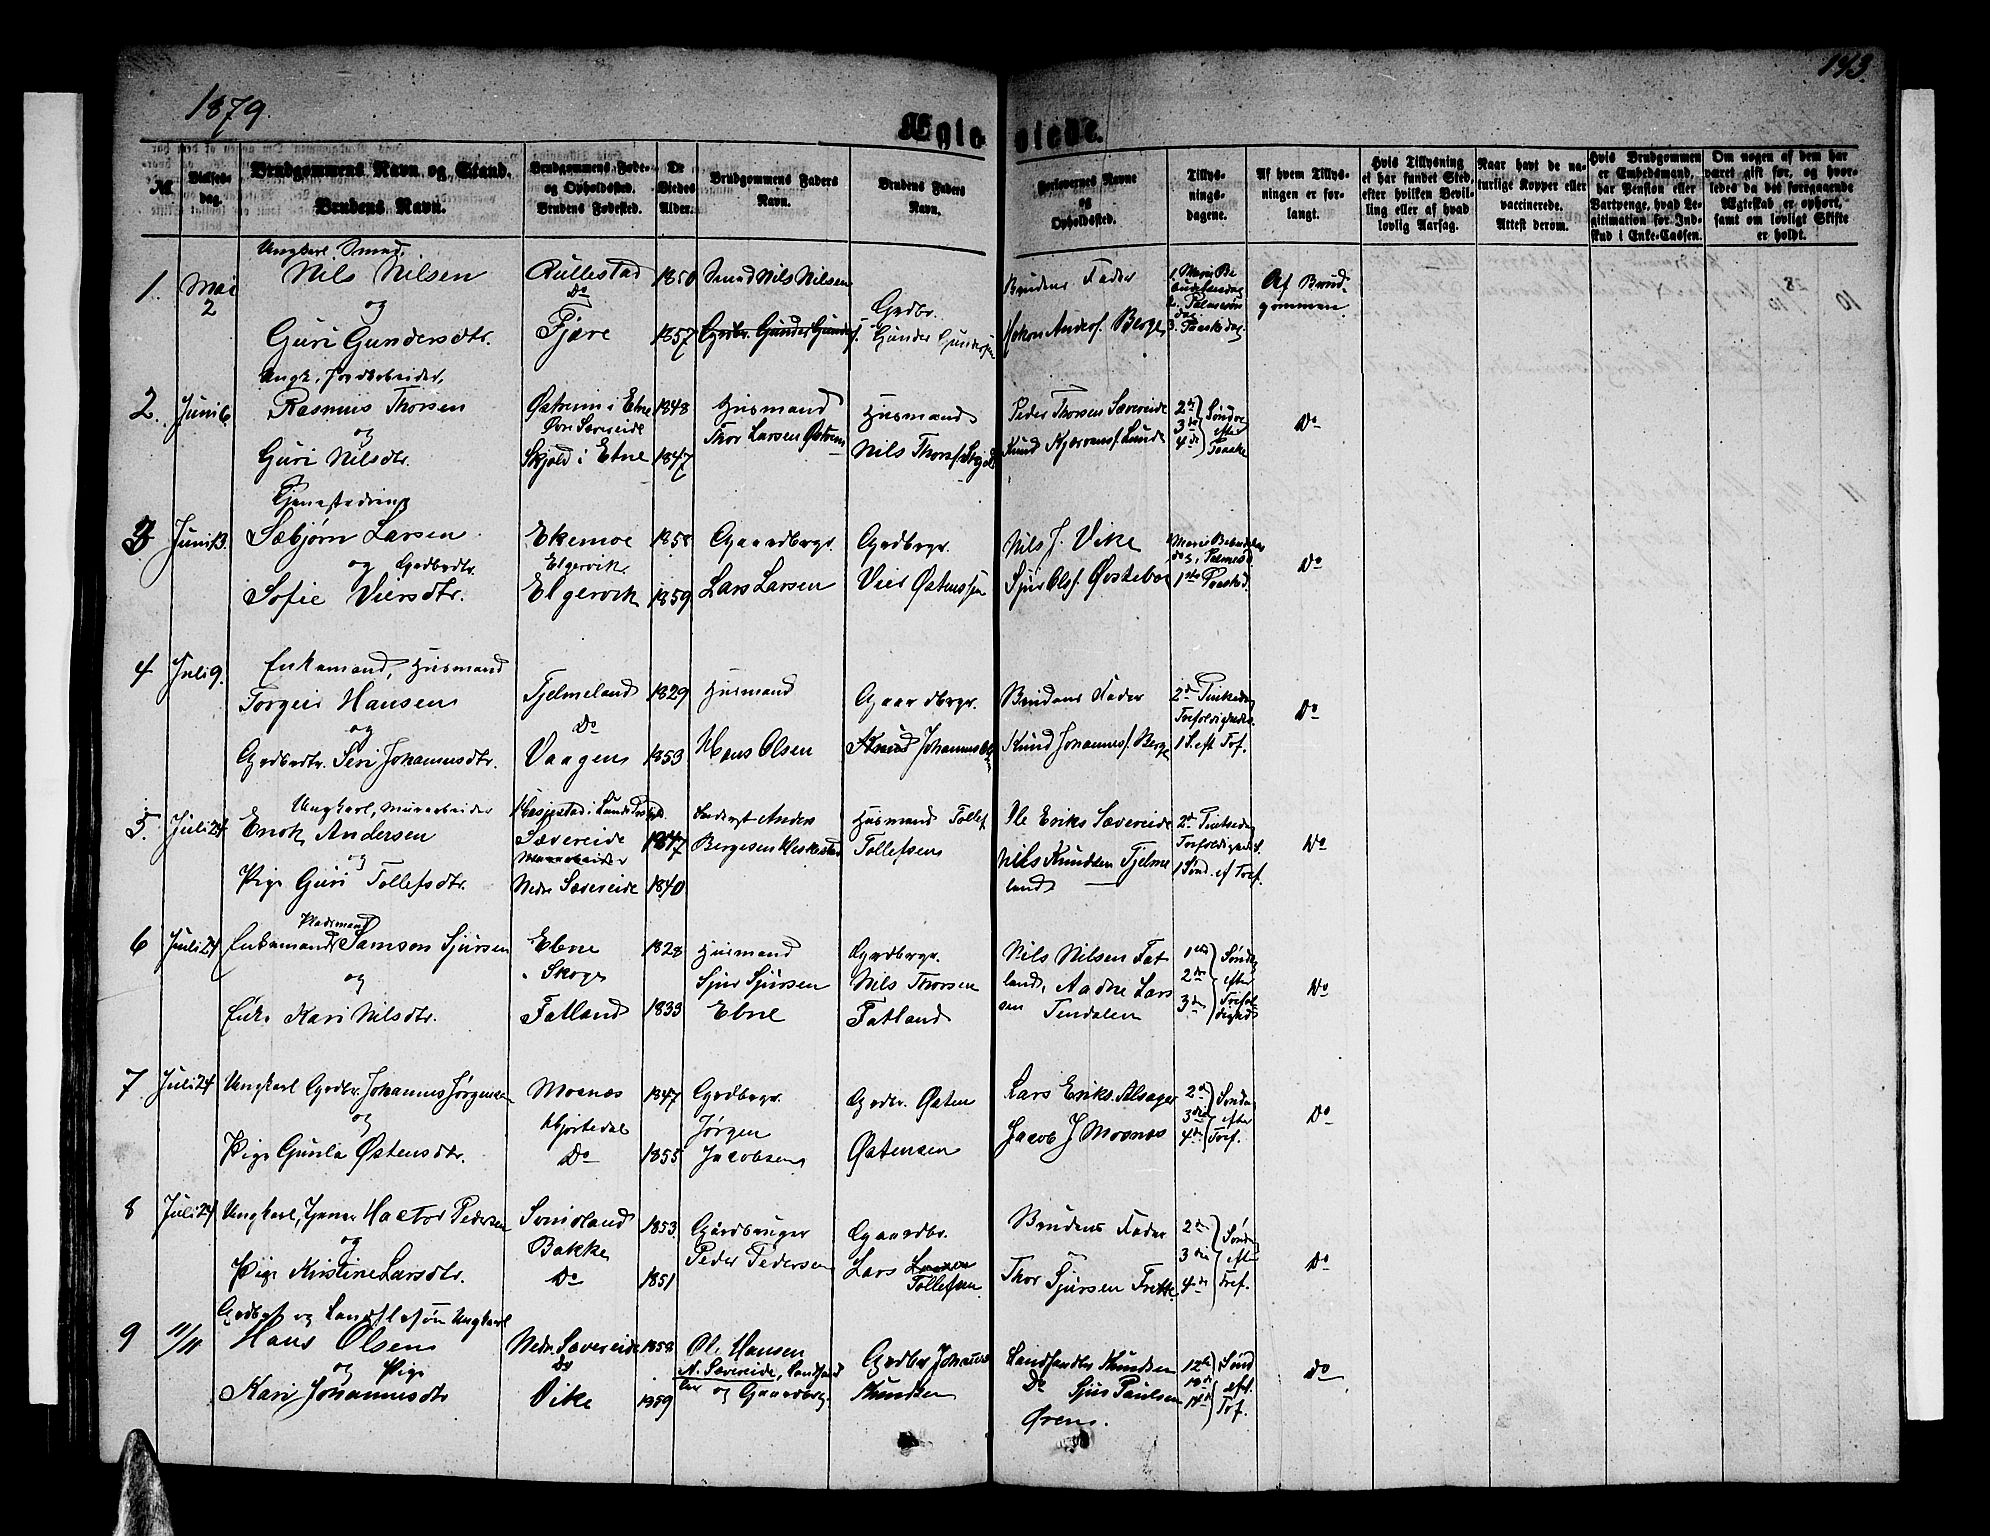 1879.
143.
Ægteviede.
No.
Vielses-
dag.
Brudgommens Navn og Stand.
Brudens Navn.
Brudgommens Føde-
og Opholdssted.
Brudens Fødested.
De
Viedes
Alder.
Brudgommens Faders
Navn.
Brudens Faders
Navn.
Forlovernes Navne
og
Opholdssted.
Tillys-
nings-
dagene.
Af hvem Tillys-
ningen er for-
langt.
Hvis Tillysning
ei har fundet Sted,
efter hvilken Bevil-
ling eller af hvad
lovlig Aarsag.
Naar havt de na-
turlige Kopper eller
vaccinerede.
Attest derom.
Hvis Brudgommen
er Embedsmand,
har Pension eller
Vartpenge, hvad Le-
gitimation for Ind-
skud i Enke-Cassen.
Om nogen af dem har
været gift før, og hvor-
ledes da det foregaaende
Ægteskab er ophørt,
samt om lovligt Skifte
er holdt.
1. Mai 2
Ungkarl Smed,
Nils Nilsen
og
Guri Gundersdtr.
Rullestad
Do
Fjære
1850
1857
Smed Nils Nilsen
Grdbr. Gunder Gunders.
Grdbr.
Gunder Gundersen
Brudens Fader
Hokon Anders. Berge
1. Marie Be-
budelsesdag
2. Palmesøn
dag
3. Paaskedag.
Af Brud-
gommen.
2. Juni 6.
Ungk. Jordarbeider,
Rasmus Thorsen
og
Guri Nilsdtr.
Østrem i Etne
Øvre Sævereide
Skjold i Etne
1848
1847
Husmand
Thor Larsen Østrem
Husmand
Nils Thors. Skjold
Peder Thorsen Sævereide
Knud Lund
2de 3de 4de
Søndag
efter
Paaske
Do
3 Juni 13.
Tjenestedreng
Sæbjørn Larsen
og Grdbrdtr.
Sofie Viersdtr.
Ekemoe
Elgervik
Elgervik
1858
1859
Gaardbrgr.
Lars Larsen
Grdbrgr.
Vier Østenssen
Nils J. Vike
Sjur Ols. Østebø
Marie Bebudelses
dag, Palmesd.
1ste Paaskd.
Do
4 Juli 9.
Enkemand, Husmand
Torgeir Hansen
og
Grdbrdtr. Siri Johannesdtr.
Tjelmeland
Do
Vaagen
1829
1853
Husmand
Hans Olsen
Gaardbrgr.
Knud Johannes
Brudens Fader
Knud Johannes. Berge
2d Pintsedag
Trefoldigheds.
1 S. eft Tref.
Do
5. Juli 24.
Ungkarl, Murarbeider
Enok Andersen
og
Pige Guri Tollefsdtr.
Sævereide
Murarbeider
Nedr. Sævereide
1847
1840
Anders
Bergesen Heskestad
Husmand Tollef
Tollefsen
Ole Eriks Sævereide
Nils Knudsen Tjelme
land
2d Pintsedag
Trefoldigheds.
1 Sønd. ef Tref.
Do
6 Juli 24
Pladsmand
Enkemand Samson Sjursen
og
Enke Kari Nilsdtr.
Ebne
Skoge
Fatland
1828
1833
Husmand
Sjur Sjursen
Ebne
Grdbrgr.
Nils Thorsen
Fatland
Nils Nilsen Fat
land, Aadne Lars
sen Tindalen
1ste 2de 3de
Søndag
efter
Trefol
digheds
Do
7 Juli 24
Ungkarl Grdbr. Johannes Jørgensen
og
Pige Gunla Østensdtr.
Mosnæs
Hjortedal
Do
1847
1855
Grdbrgr.
Jørgen
Jacobsen
Grdbr. Østen
Østensen
Lars Eriks. Alsager
Jacob J Mosnæs
2d 3die 4de
Søndag
efter
Tref.
Do
8 Juli 24
Ungkarl, Tjener Hactor Pedersen
og
Pige Kristine Larsdtr.
Svindland
Bakke
Do
1853
1851
Gårdbruger
Peder Pedersen
Gaardbr.
Lars Larsen
Tollefsen
Brudens Fader
Thor Sjursen Frette
2de 3die 4de
Søndag
efter
Tref.
Do
9 11/11
Grdbrs. og Ungkarl
Hans Olsen
og Pige
Kari Johannesdtr
Nedr. Sævereide
Do
Vike
1858
1859
Ole Hansen
N. Sævereide, Landhand
ler og Gaardbrg.
Grdbr Johannes
Knudsen
Landhandler Knudsen
Do Sjur Paulsen
Ørens.
12te 13de 14de
Sønd
eft.
Tref.
Do